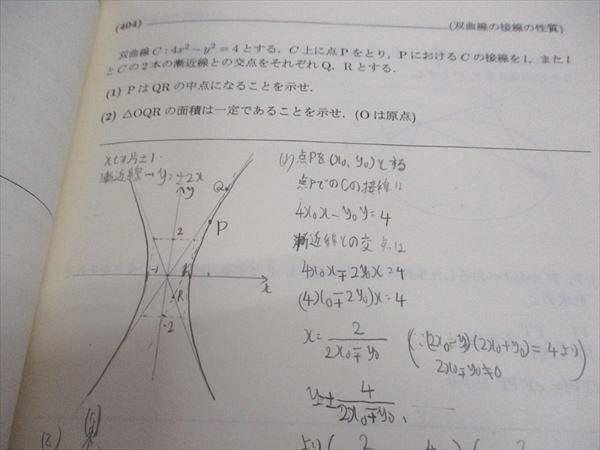 (404) (双曲線の接線の性質)
双曲線 C : 4x² − y² = 4 とする．C 上に点 P をとり，P における C の接線を l，また l
と C の 2 本の漸近線との交点をそれぞれ Q，R とする．
(1) P は QR の中点になることを示せ．
(2) △OQR の面積は一定であることを示せ．(O は原点)
±1
漸近線… y=±2x
y
Q
P
2
-1
1
x
R
-2
(1) 点Pを(x₀, y₀)とする
点PでのCの接線は
4x₀x−y₀y=4
漸近線との交点は
4x₀x∓2y₀x=4
(4x₀∓2y₀)x=4
x= 2/(2x₀∓y₀) (∵(2x₀−y₀)(2x₀+y₀)=4より
2x₀∓y₀≠0)
y=± 4/(2x₀∓y₀),
(2)